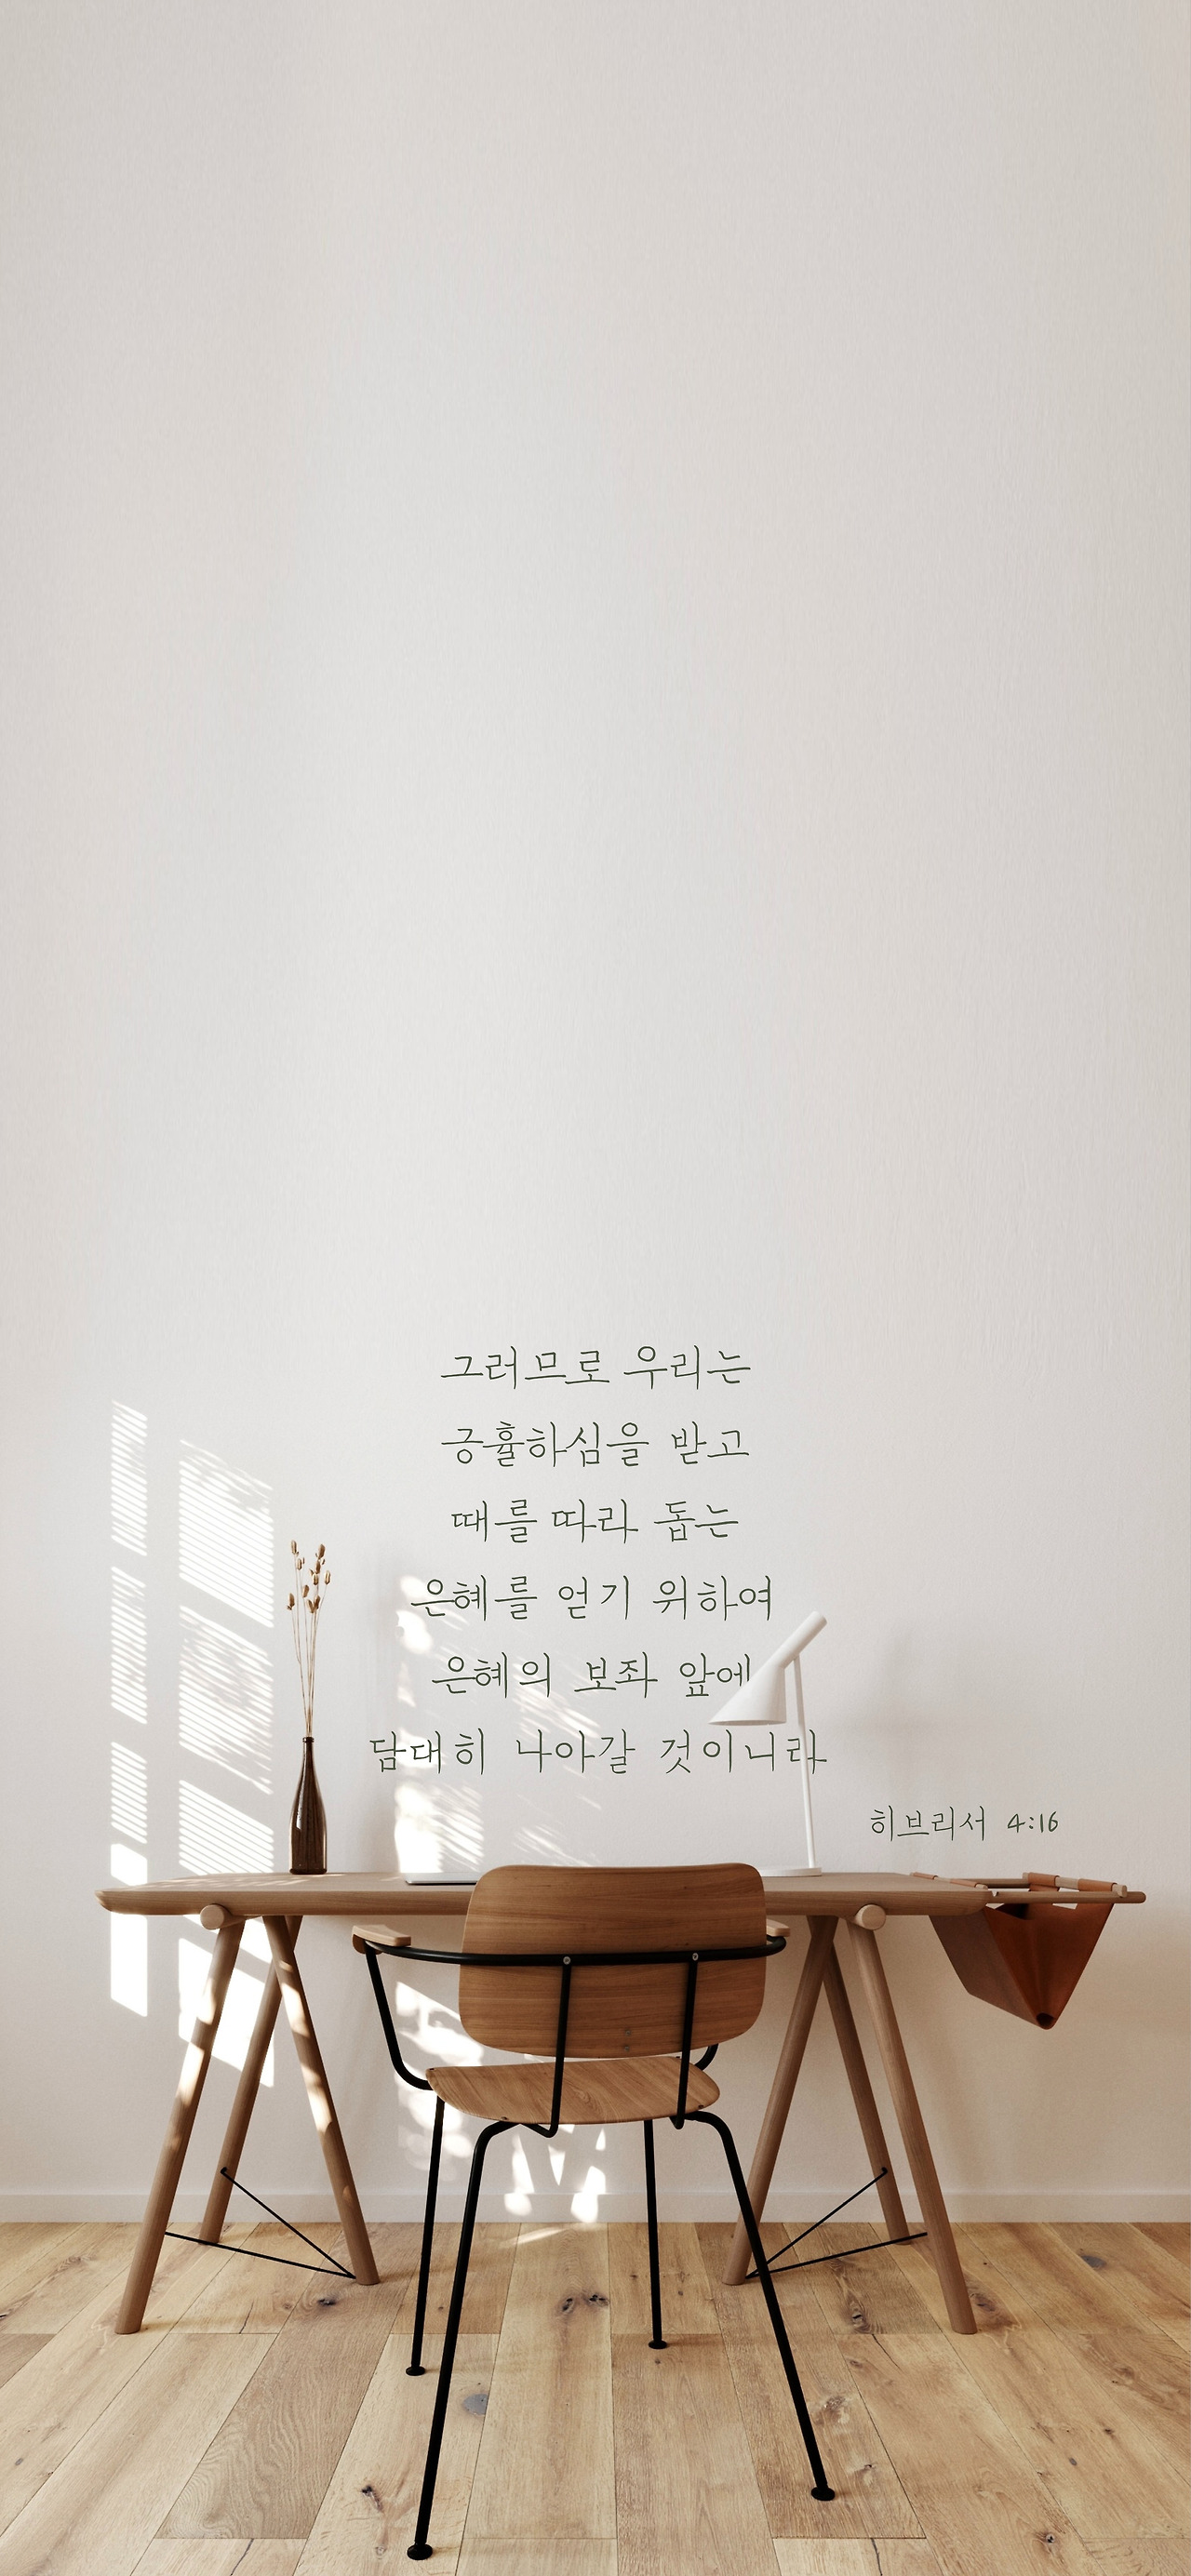 그러므로 우리는
긍휼하심을 받고
때를 따라 돕는
은혜를 얻기 위하여
은혜의 보좌 앞에
담대히 나아갈 것이니라
히브리서 4:16